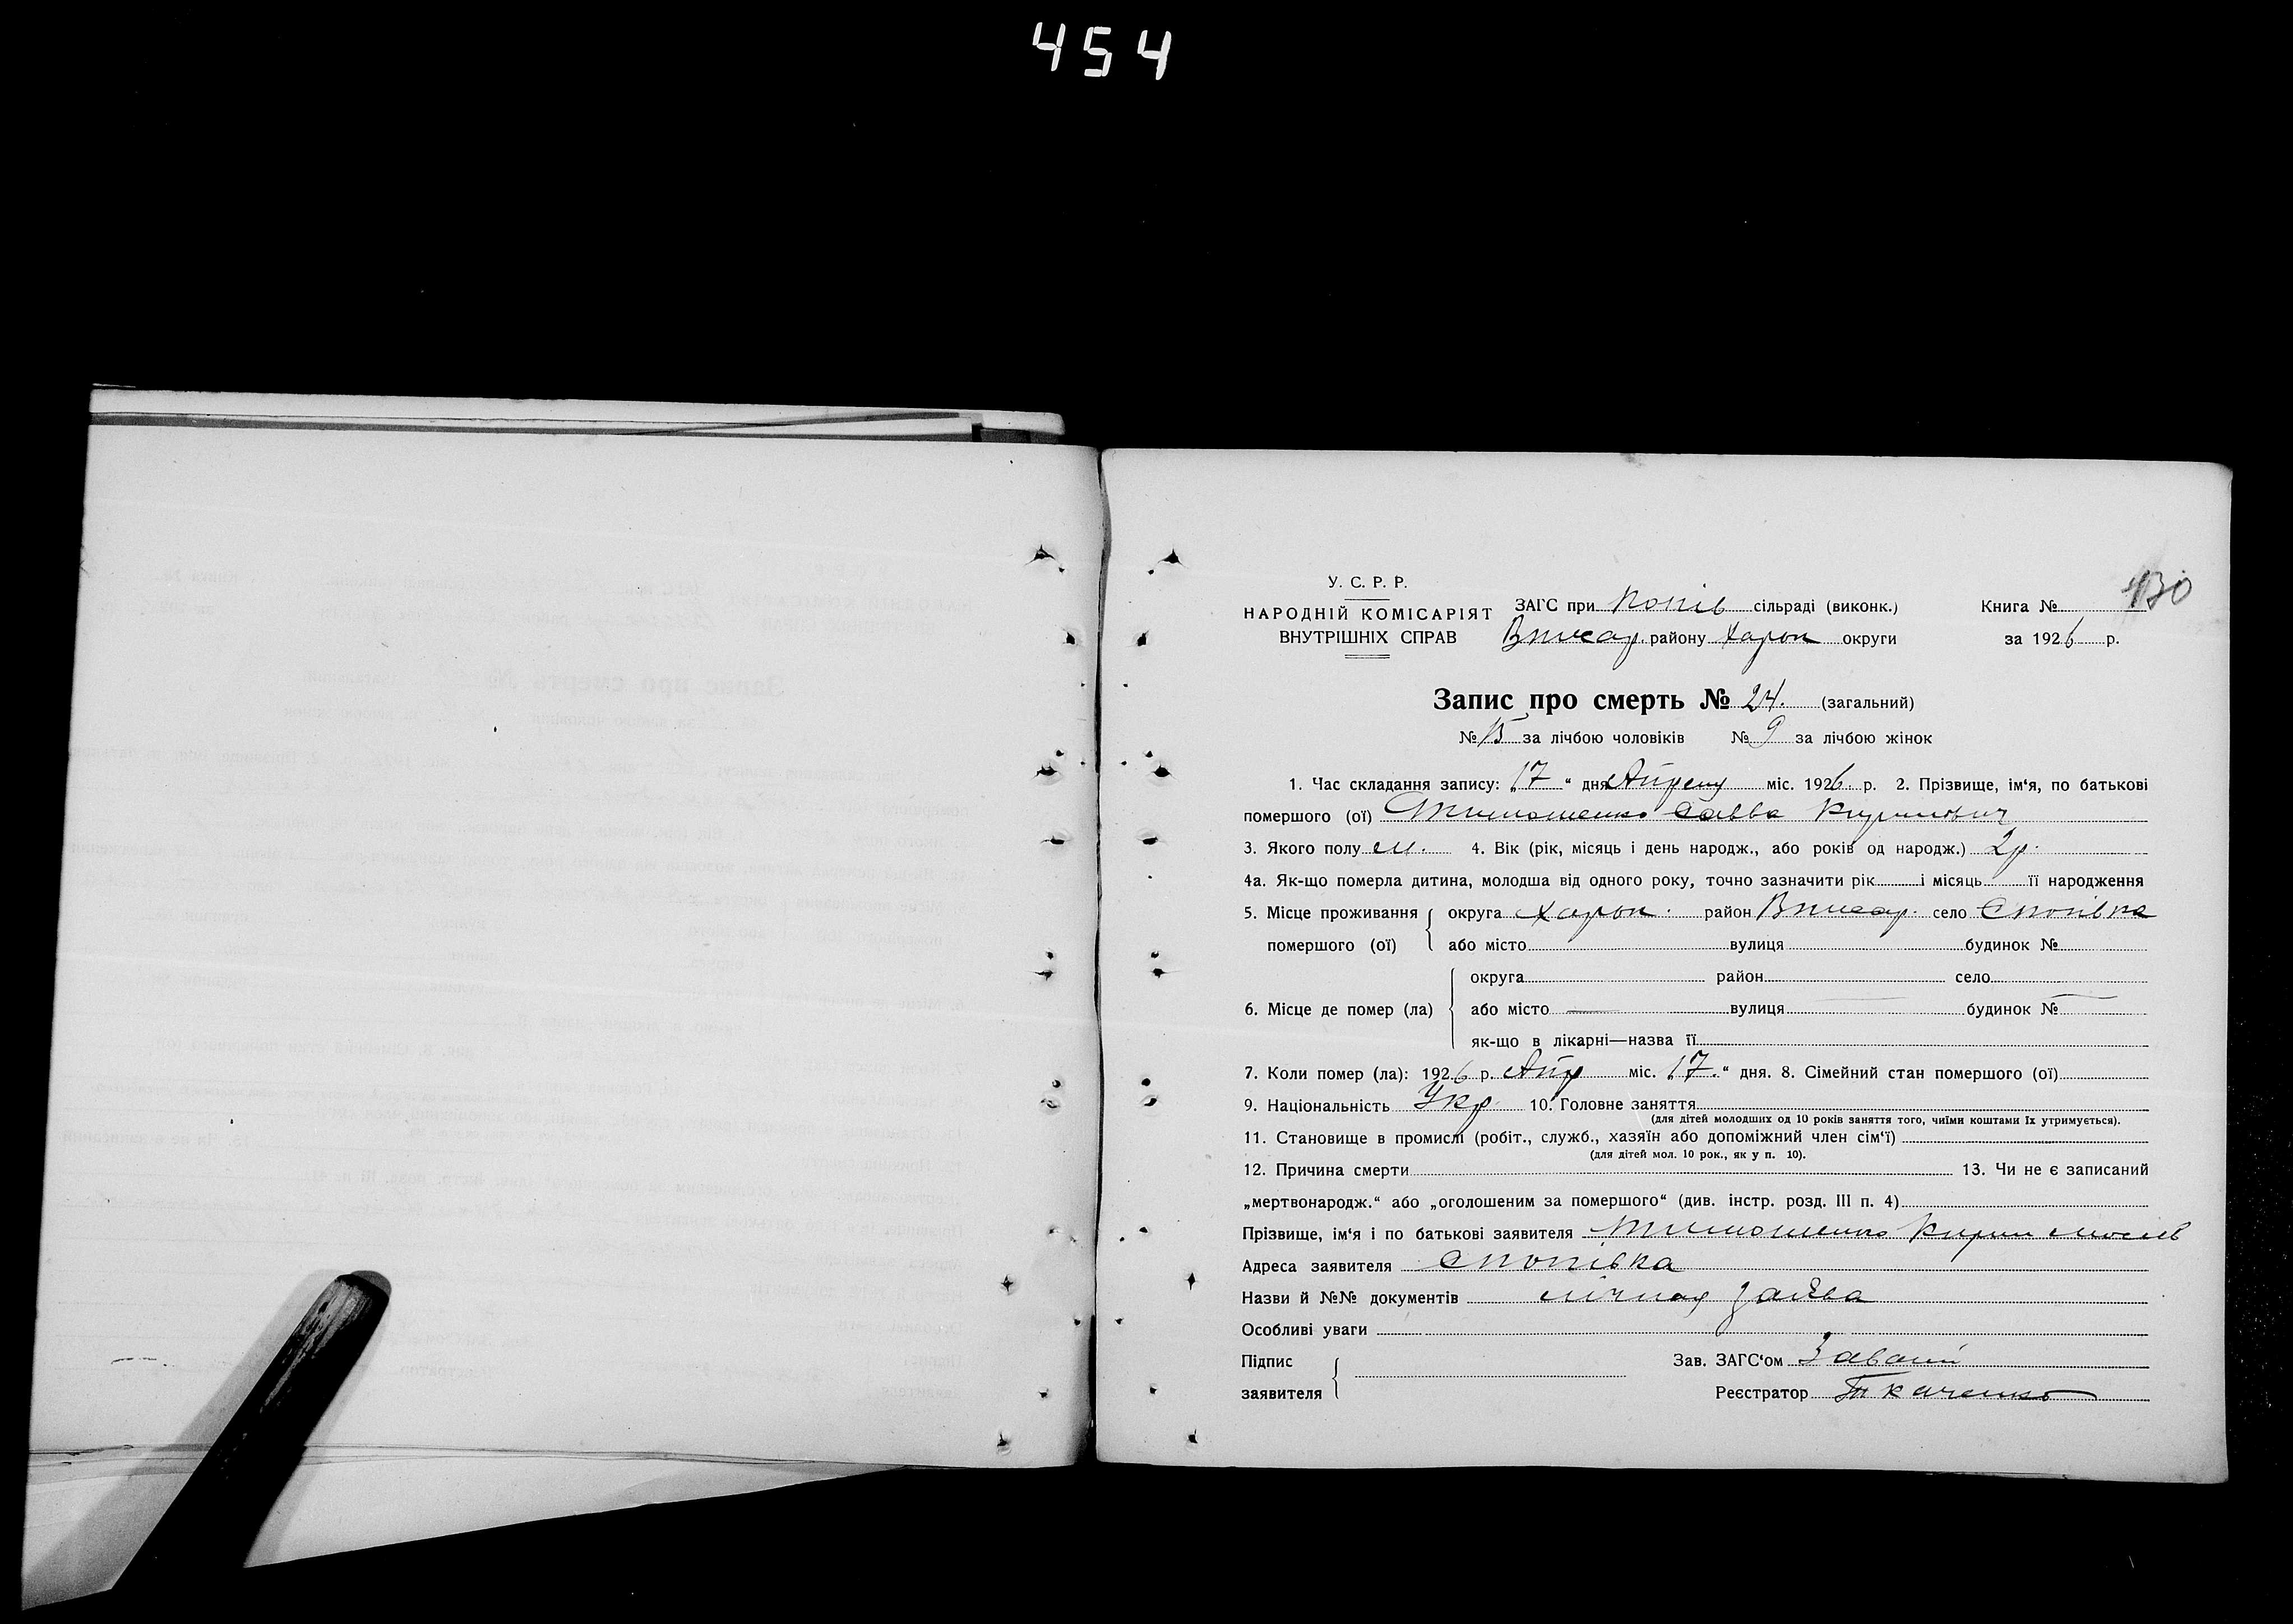 454
130
У. С. Р. Р.
НАРОДНІЙ КОМІСАРІЯТ
ВНУТРІШНІХ СПРАВ
ЗАГС при Копів сільраді (виконк.)
району Харьк округи
Книга №
за 1926 р.
Запис про смерть № 24. (загальний)
№ 15 за лічбою чоловіків № 9 за лічбою жінок
1. Час складання запису: „17“ дня Апреля міс. 1926 р. 2. Прізвище, ім‘я, по батькові
помершого (ої) Тимошенко Савва Кирилович
3. Якого полу м. 4. Вік (рік, місяць і день народж., або років од народж.) 2р.
4а. Як-що померла дитина, молодша від одного року, точно зазначити рік і місяць її народження
5. Місце проживання помершого (ої) { округа Харьк. район село
або місто вулиця будинок №
6. Місце де помер (ла) { округа район село
або місто — вулиця — будинок № —
як-що в лікарні—назва її
7. Коли помер (ла): 1926 р. Апр міс. „17.“ дня. 8. Сімейний стан помершого (ої)
9. Національність Укр. 10. Головне заняття
(для дітей молодших од 10 років заняття того, чиїми коштами їх утримується).
11. Становище в промислі (робіт., служб., хазяїн або допоміжний член сім‘ї)
(для дітей мол. 10 рок., як у п. 10).
12. Причина смерти 13. Чи не є записаний
„мертвонародж.“ або „оголошеним за помершого“ (див. інстр. розд. III п. 4)
Прізвище, ім‘я і по батькові заявителя Тимошенко Кирил
Адреса заявителя
Назви й №№ документів заява
Особливі уваги
Підпис
заявителя {
Зав. ЗАГС‘ом
Реєстратор Ткаченко